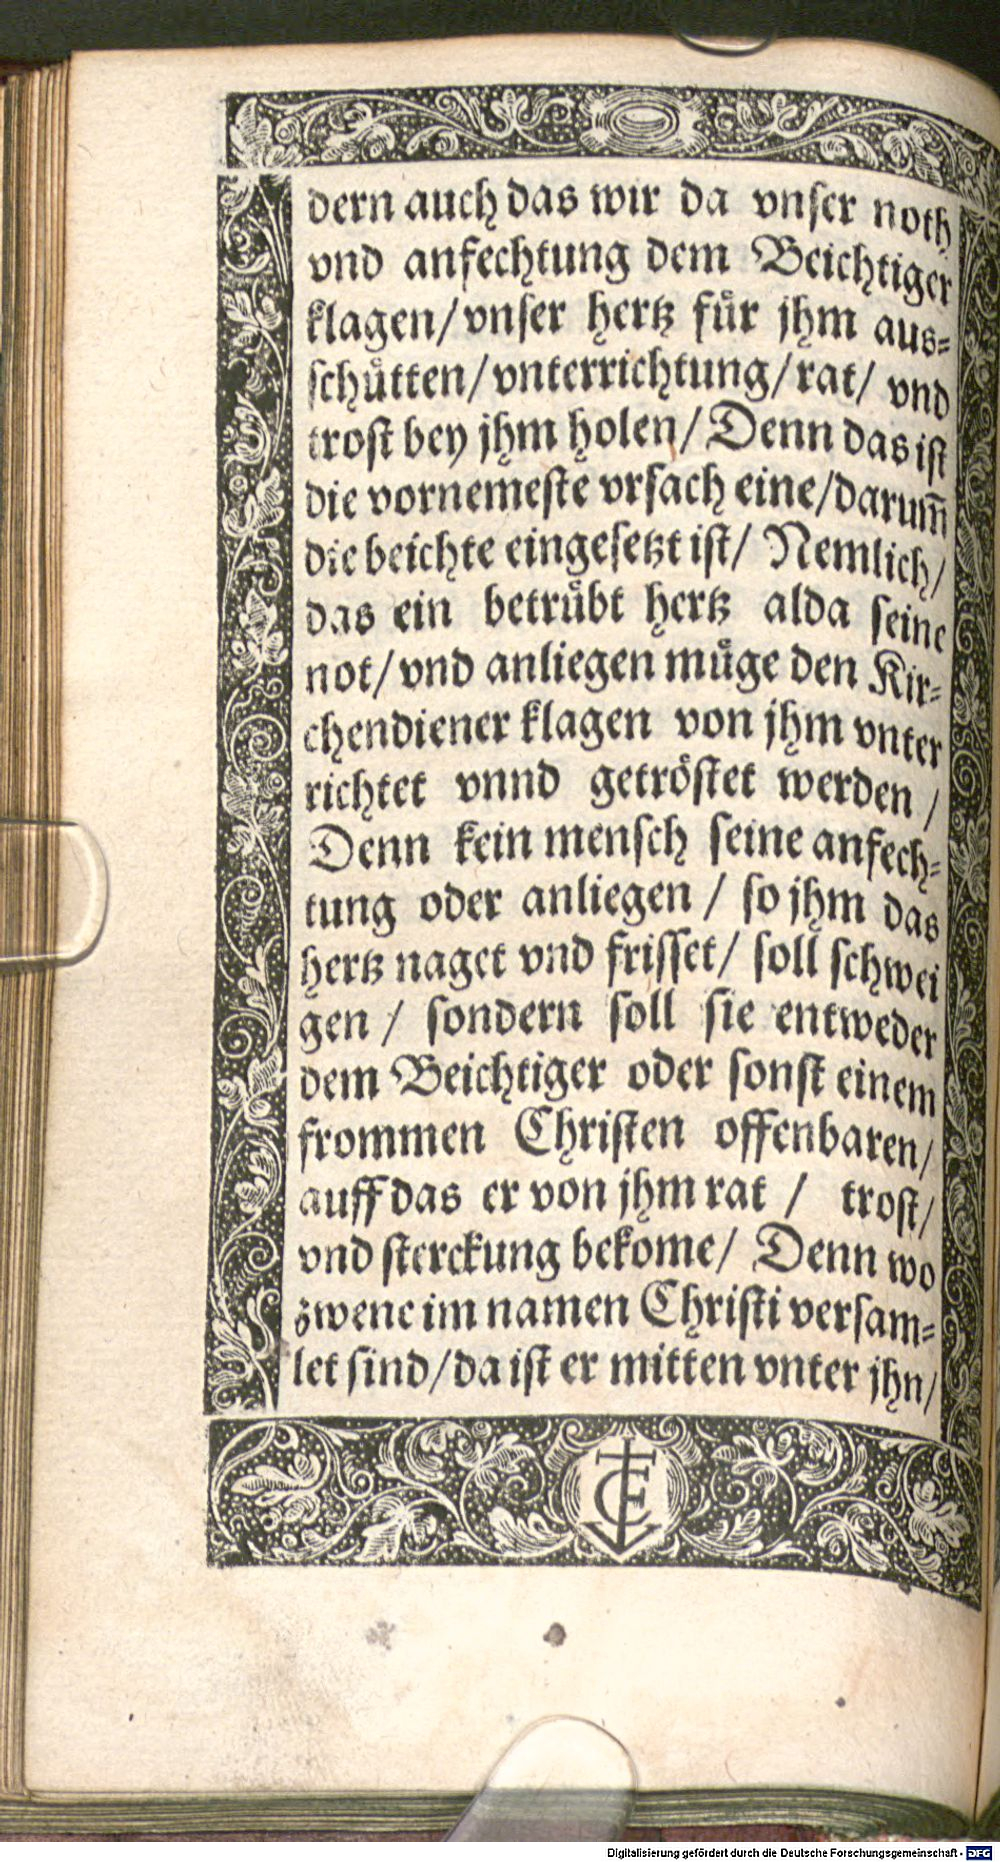 dern auch das wir da vnser noth
vnd anfechtung dem Beichtiger
klagen/vnser hertz fuͤr jhm aus⸗
schuͤtten/vnterrichtung/rat/ vnd
trost bey jhm holen/ Denn das ist
die vornemeste vrsach eine/darum̃
die beichte eingesetzt ist/ Nemlich/
das ein betruͤbt hertz alda seine
not/vnd anliegen muͤge den Kir⸗
chendiener klagen von jhm vnter
richtet vnnd getroͤstet werden /
Denn kein mensch seine anfech⸗
tung oder anliegen / so jhm das
hertz naget vnd frisset/ soll schwei
gen / sondern soll sie entweder
dem Beichtiger oder sonst einem
frommen Christen offenbaren/
auff das er von jhm rat / trost/
vnd sterckung bekome/ Denn wo
zwene im namen Christi versam⸗
let sind/da ist er mitten vnter jhn/
Digitalisierung gefördert durch die Deutsche Forschungsgemeinschaft - DFG